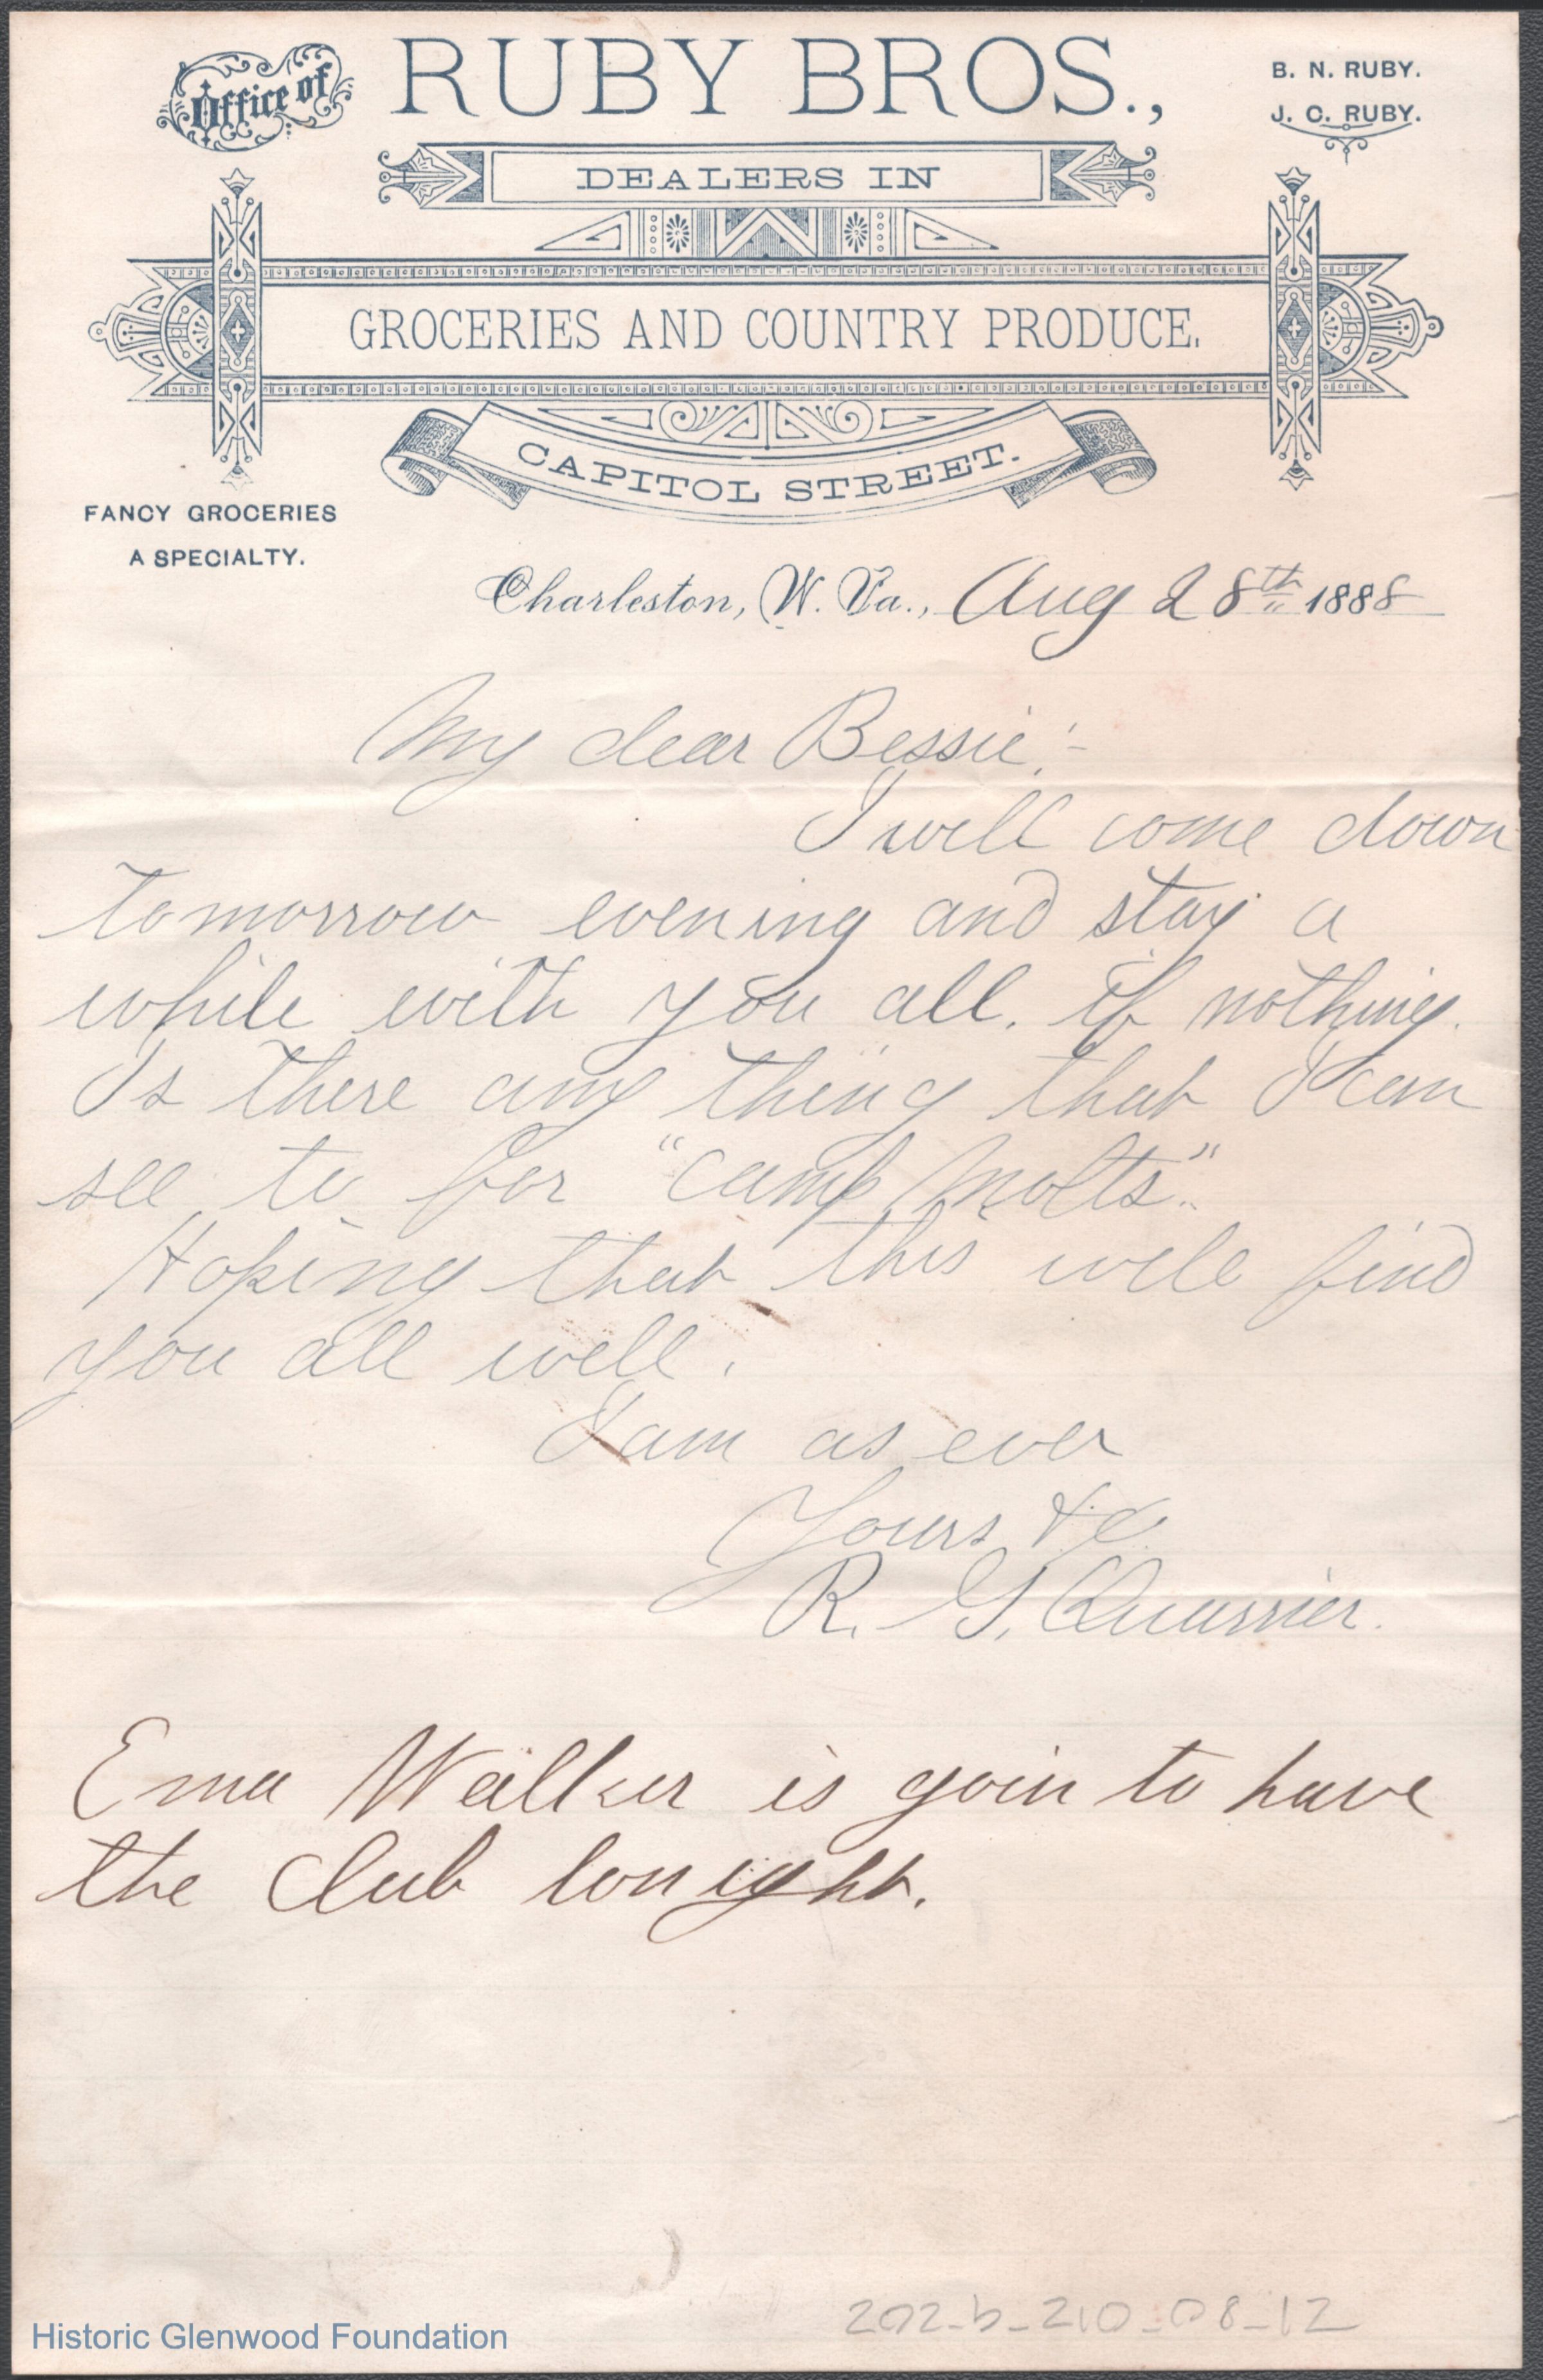 Office of RUBY BROS.,
B. N. RUBY.
J. C. RUBY.
DEALERS IN
GROCERIES AND COUNTRY PRODUCE.
CAPITOL STREET.
FANCY GROCERIES
A SPECIALTY.
Charleston, W. Va., Aug 28th 1888
My dear Bessie:-
I will come down
tomorrow evening and stay a
while with you all. if nothing.
Is there any thing that I can
see to for "Camp Molts".
Hoping that this will find
you all well.
I am as ever
Yours &c.
R. G. Quarrier.
Ema Walker is goin to have
the Club tonight.
202-b-210-08-12
Historic Glenwood Foundation